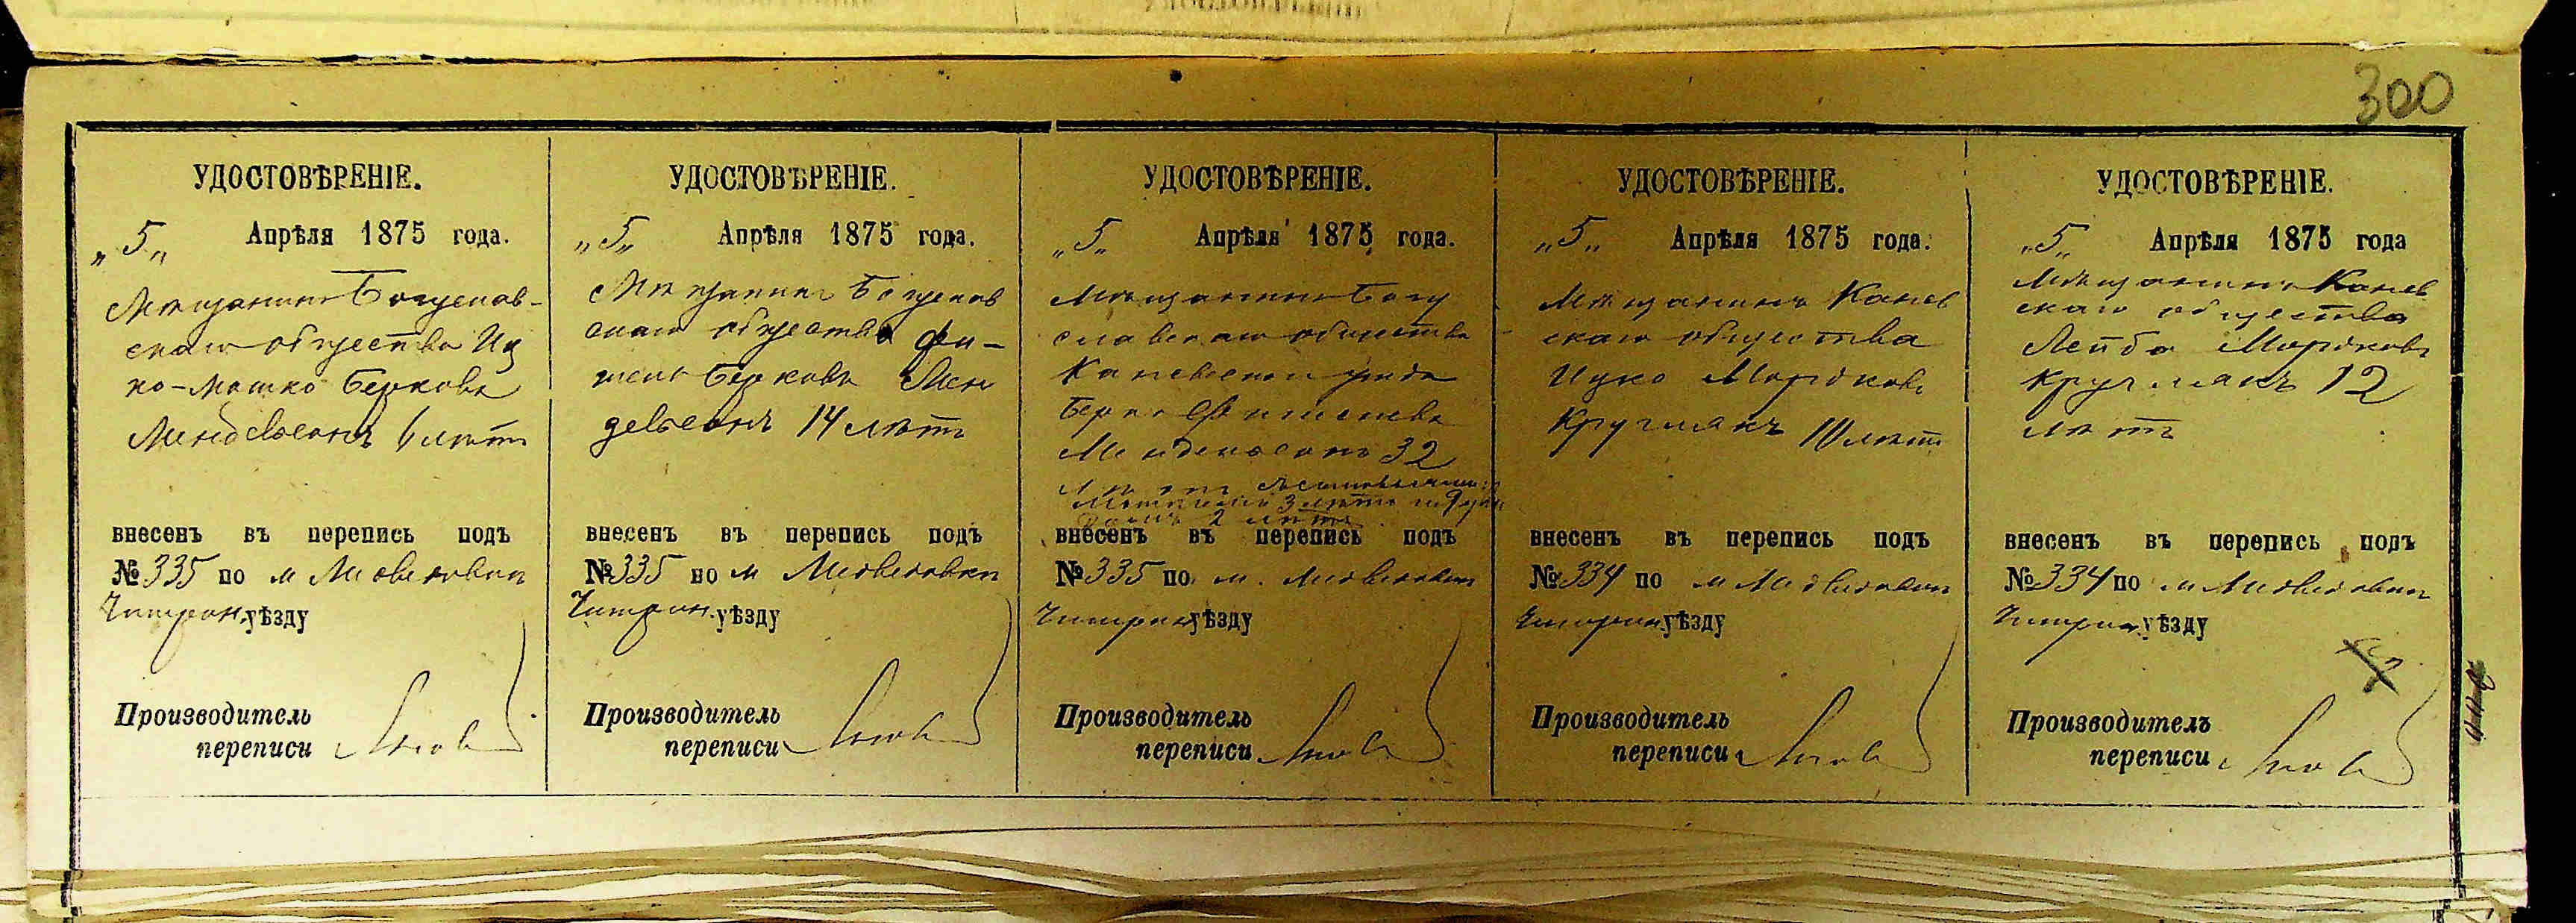 300
УДОСТОВѢРЕНІЕ.
„5„ Апрѣля 1875 года.
Мѣщанинъ Богуслав-
скаго общества Иц
ко-Мошко Берковъ
Мендельсонъ 6 лѣтъ
внесенъ въ перепись подъ
№ 335 по м Медведовки
Чигирин. уѣзду
Производитель
переписи
УДОСТОВѢРЕНІЕ.
„5„ Апрѣля 1875 года.
Мѣщанинъ Богуслав
скаго общества Фи-
шель Берковъ Мен
дельсонъ 14 лѣтъ
внесенъ въ перепись подъ
№ 335 по м Медведовки
Чигирин. уѣзду
Производитель
переписи
УДОСТОВѢРЕНІЕ.
„5„ Апрѣля 1875 года.
Мѣщанинъ Богу
славскаго общества
Каневского уѣзда
Берко Фишелевъ
Мендельсонъ 32
лѣтъ съ сыновьями:
3 лѣтъ и
2 лѣтъ
внесенъ въ перепись подъ
№ 335 по м. Медведовки
Чигирин уѣзду
Производитель
переписи
УДОСТОВѢРЕНІЕ.
„5„ Апрѣля 1875 года.
Мѣщанинъ Канев
скаго общества
Ицко Мордковъ
Кругликъ 10 лѣтъ
внесенъ въ перепись подъ
№ 334 по м Медведовки
Чигирин уѣзду
Производитель
переписи
УДОСТОВѢРЕНІЕ.
„5„ Апрѣля 1875 года
Мѣщанинъ Канев
скаго общества
Лейба Мордковъ
12
лѣтъ
внесенъ въ перепись подъ
№ 334 по м Медведовки
Чигирин уѣзду
Производитель
переписи